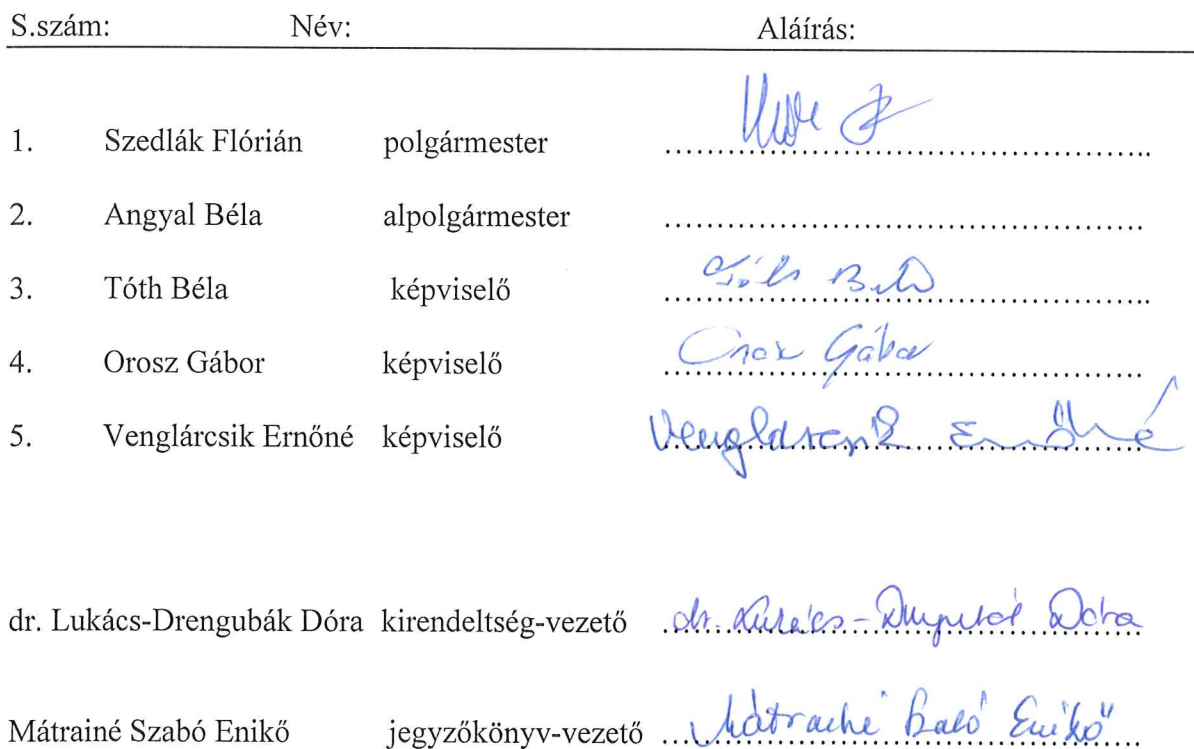 S.szám: Név: Aláírás:
1. Szedlák Flórián polgármester ..........
2. Angyal Béla alpolgármester ..........
3. Tóth Béla képviselő Tóth Béla
4. Orosz Gábor képviselő Orosz Gábor
5. Venglárcsik Ernőné képviselő Venglárcsik Ernőné
dr. Lukács-Drengubák Dóra kirendeltség-vezető dr. Lukács-Drengubák Dóra
Mátrainé Szabó Enikő jegyzőkönyv-vezető Mátrainé Szabó Enikő